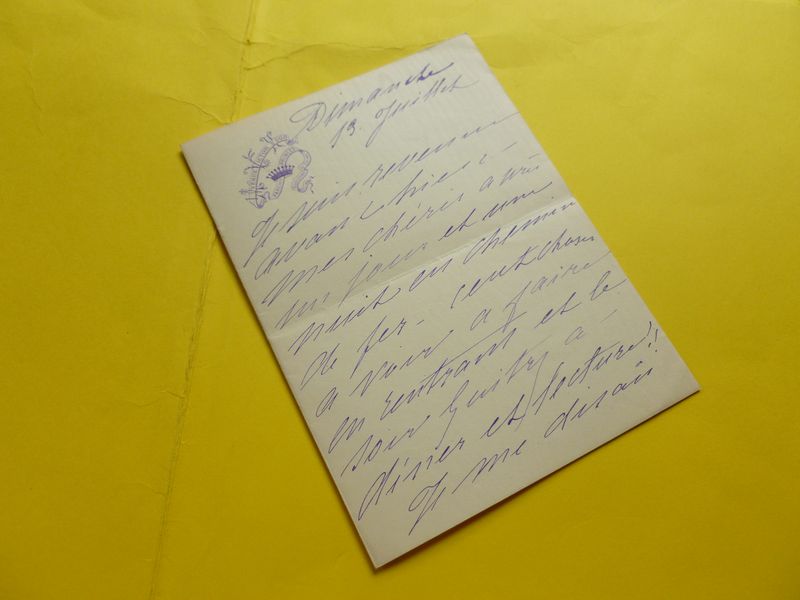 Dimanche
13. Juillet
Je suis revenue
avant hier -
mes chéris après
un jour et une
nuit en chemin
de fer - cent choses
a voir a faire
en rentrant et le
soir Guitry a -
diner et lecture!!
Je me disais